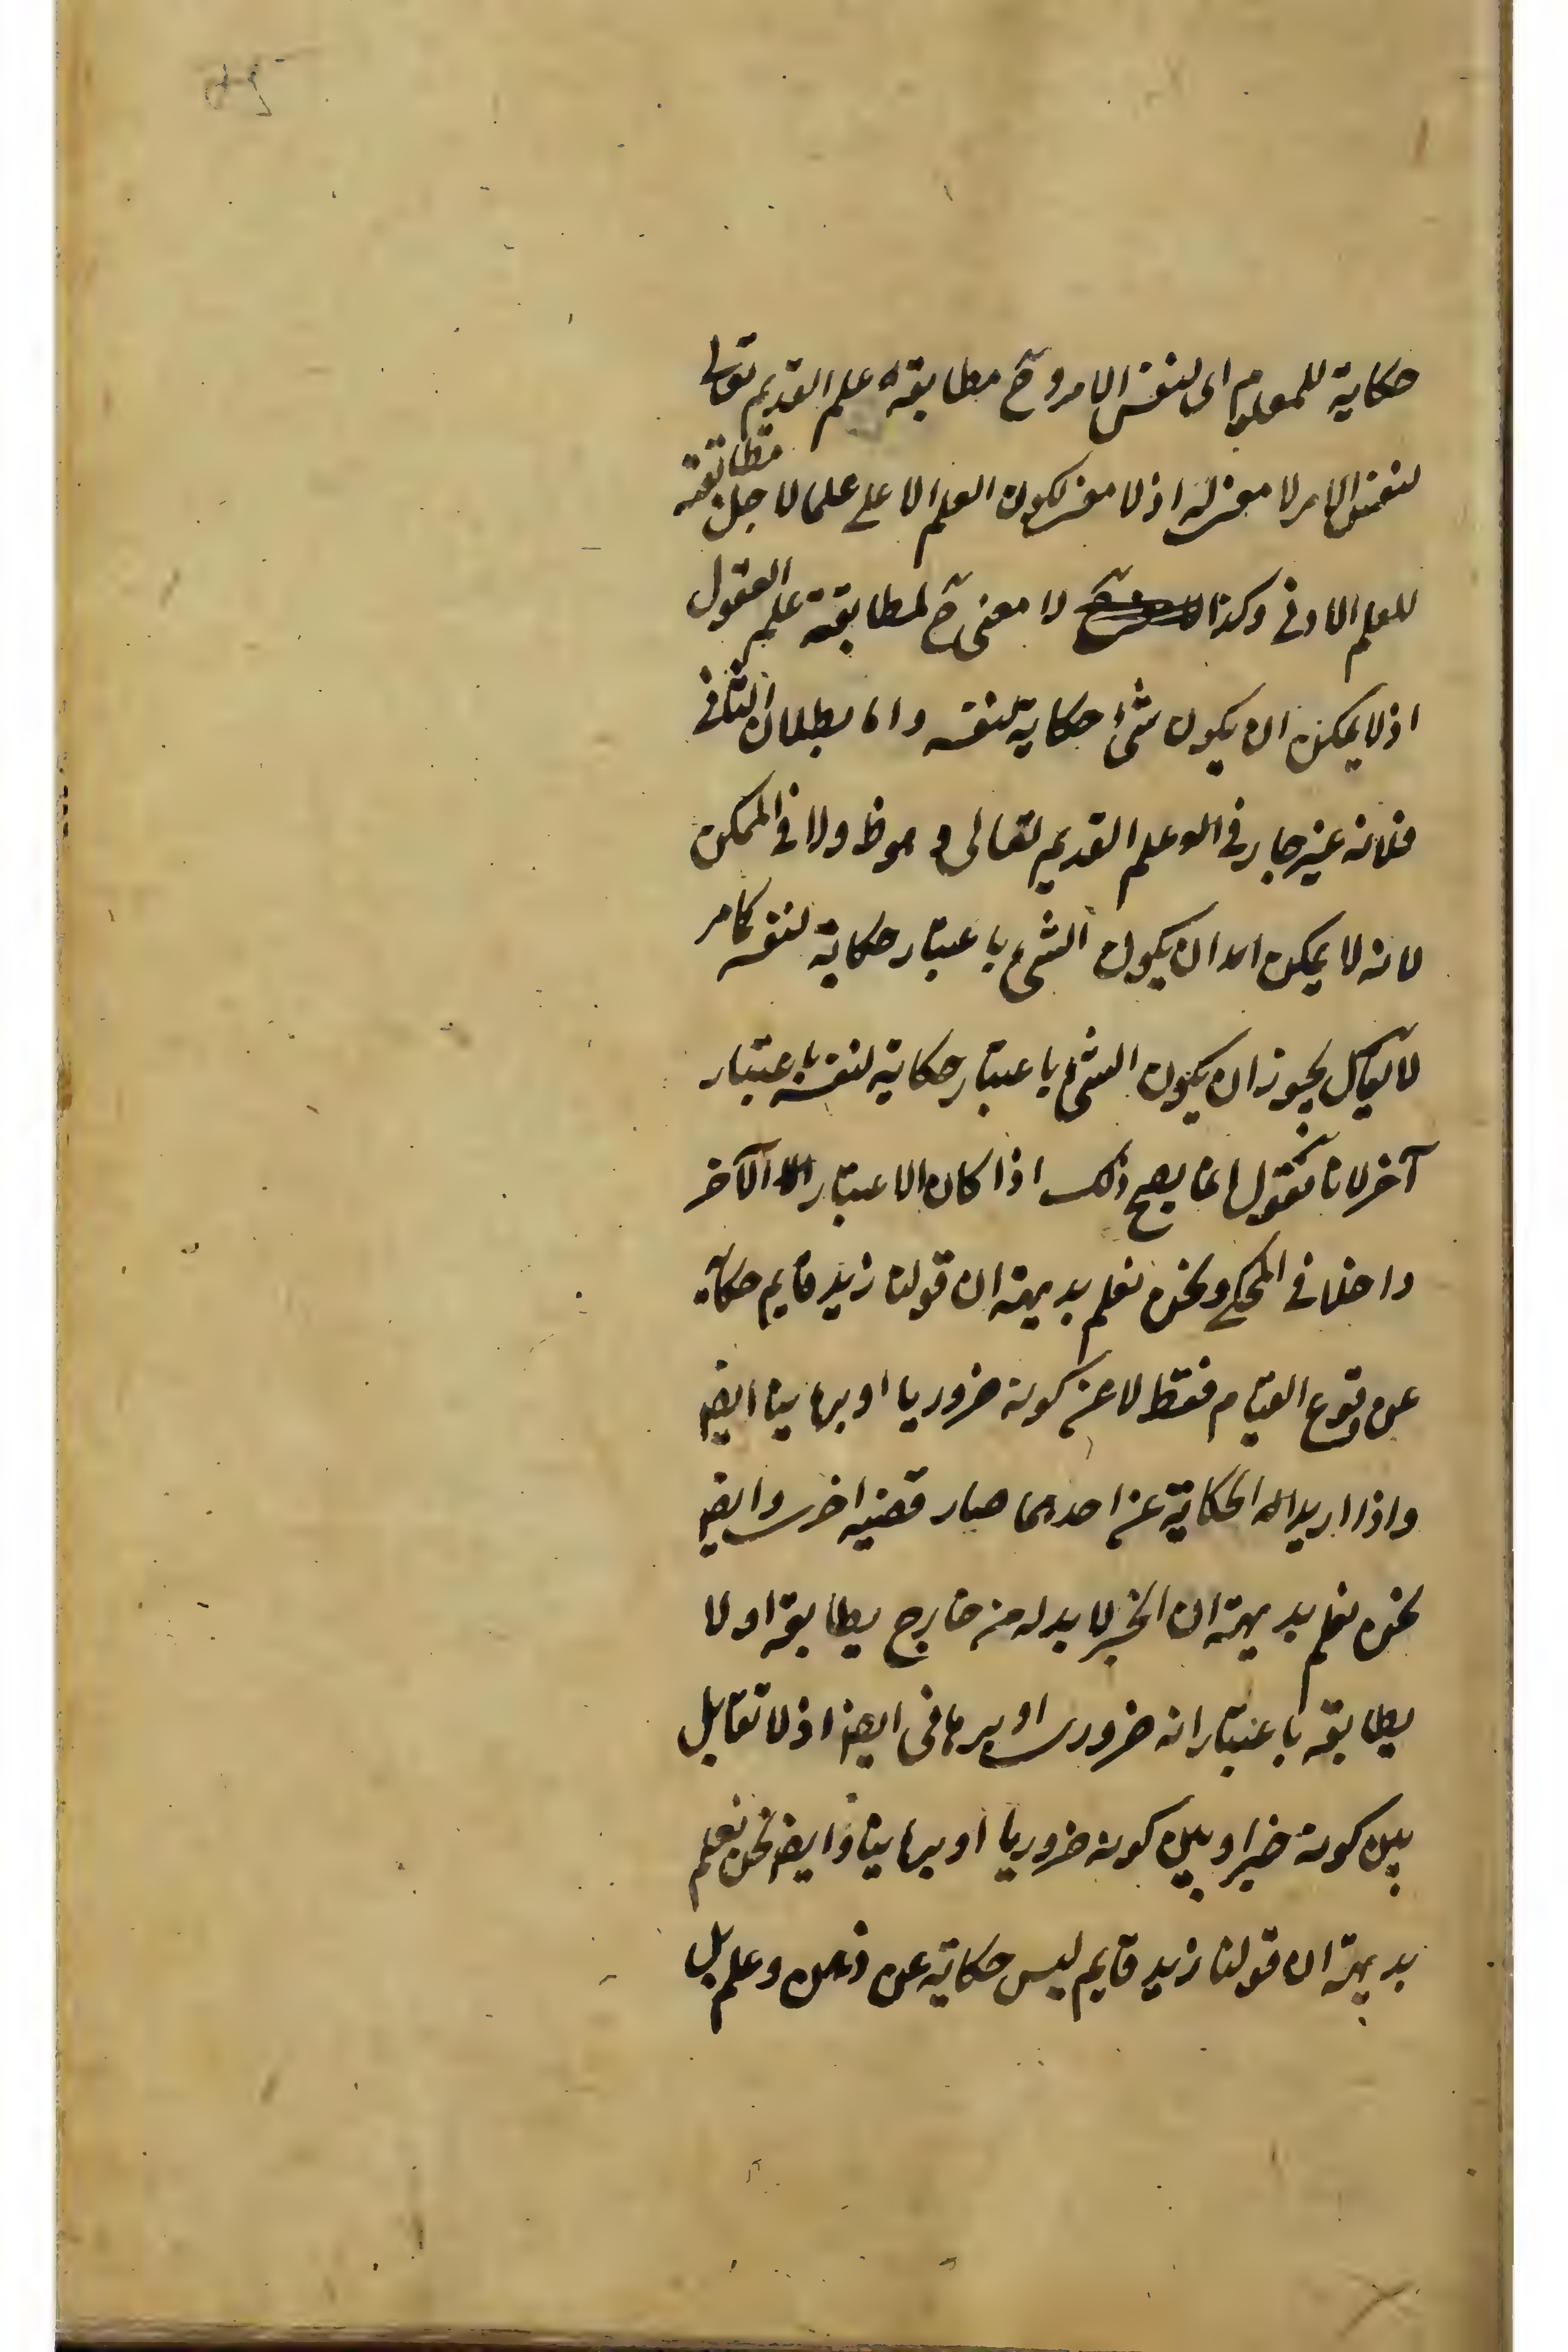 حكاية للمعلوم اى لنفس الامر وح مطابقة علم القديم تعالى
لنفس الامر لا معنى له اذ لا معنى لكون العلم الاعلى علما لاجل مطابقته
للعلم الادنى وكذا لا معنى ح لمطابقة علم العقول
اذ لا يمكن ان يكون شئ حكاية لنفسه واما بطلان الثانى
فلانه غير جار فى علم القديم تعالى وهو ظ ولا فى الممكن
لانه لا يمكن ان يكون الشئ باعتبار حكاية لنفسه كما مر
لا يقال يجوز ان يكون الشئ باعتبار حكاية لنفسه باعتبار
آخر لانا نقول انما يصح ذلك اذا كان الاعتبار الآخر
داخلا فى المحكى ونحن نعلم بديهة ان قولنا زيد قايم حكاية
عن وقوع القيام فقط لا عن كونه ضروريا او برهانيا ايض
واذا اريد الحكاية عن احدهما صار قضيه اخرى وايض
نحن نعلم بديهة ان الخبر لا بد له من خارج يطابقه او لا
يطابقه باعتبار انه ضرورى او برهانى ايض اذ لا تقابل
بين كونه خبرا وبين كونه ضروريا او برهانيا وايض نحن نعلم
بديهة ان قولنا زيد قايم ليس حكاية عن ذهن وعلم بل